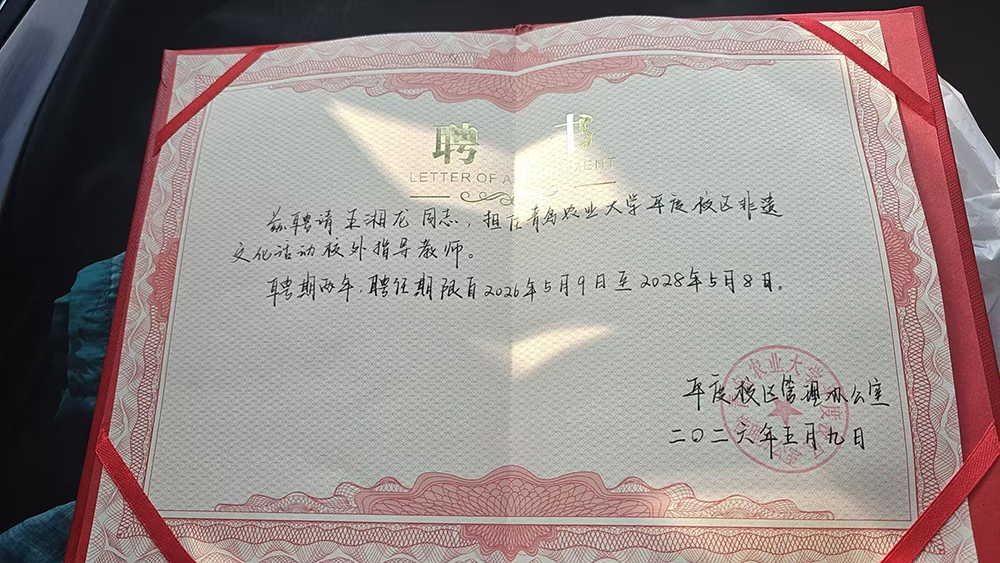 聘 书
LETTER OF A MENT
兹聘请王湘龙同志，担任青岛农业大学平度校区非遗
文化活动校外指导教师。
聘期两年，聘任期限自2026年5月9日至2028年5月8日。
平度校区管理办公室
二〇二六年五月九日